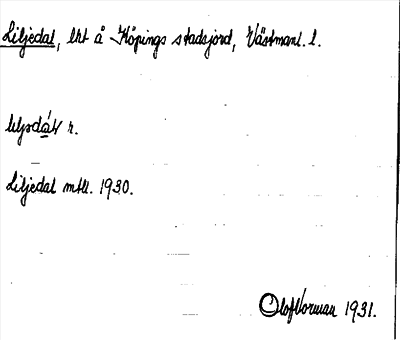 Liljedal, lht å Köpings stadsjord, Västmanl. l.
r.
Liljedal mtll. 1930.
Olof Norman 1931.